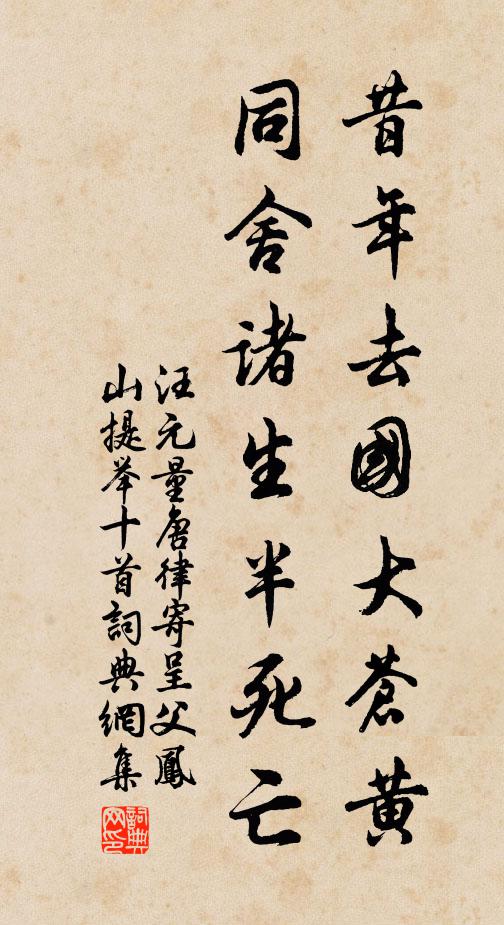 昔年去國大蒼黃
同舍諸生半死亡
汪元量唐律寄呈父鳳
山提举十首詞典網集
詞典网印